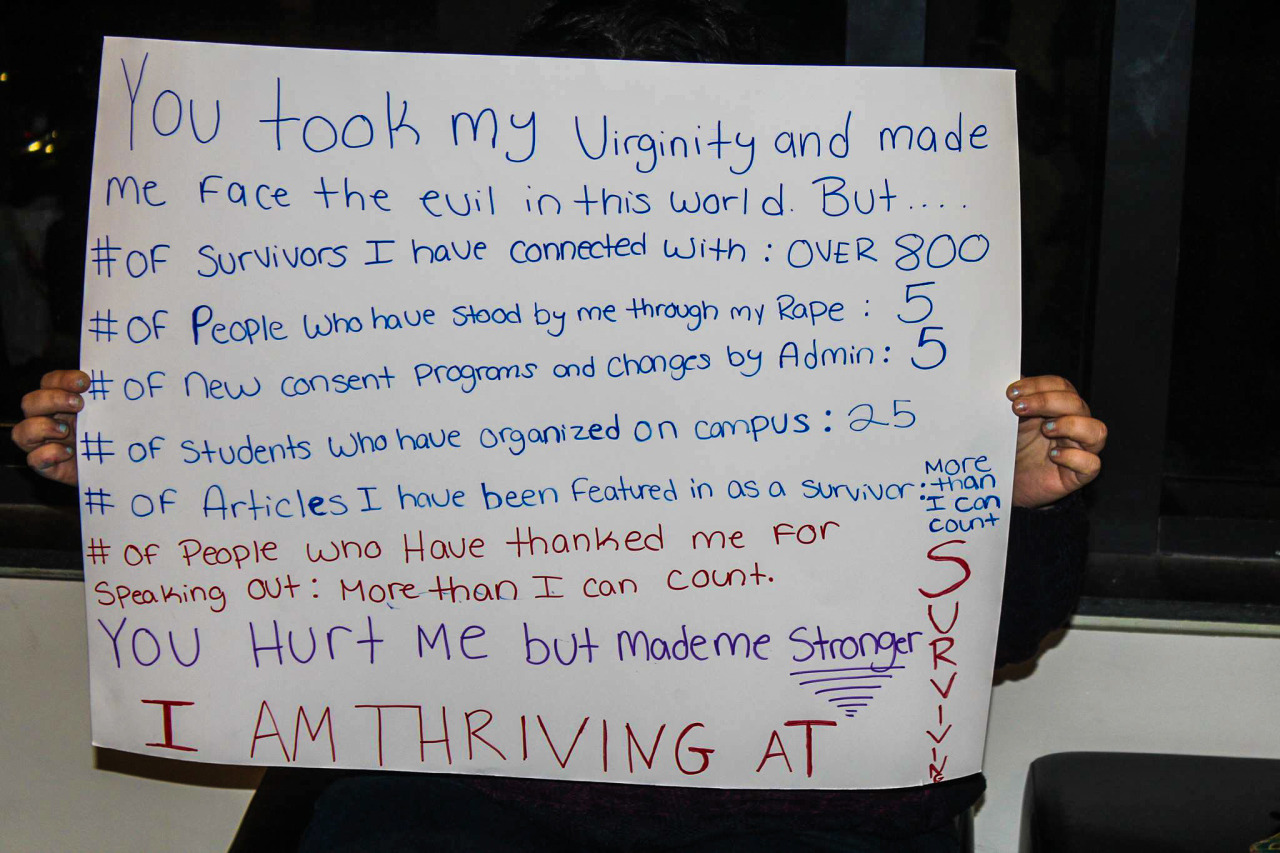 You took my Virginity and made
me Face the evil in this world. But....
# OF Survivors I have connected with : OVER 800
# OF People who have stood by me through my Rape : 5
# OF new consent Programs and changes by Admin : 5
# OF Students who have organized on campus : 25
# OF Articles I have been featured in as a survivor : More than I can count
# OF People who Have thanked me For
Speaking out : More than I can count.
You Hurt Me but Made me Stronger
I AM THRIVING AT
SURVIVING